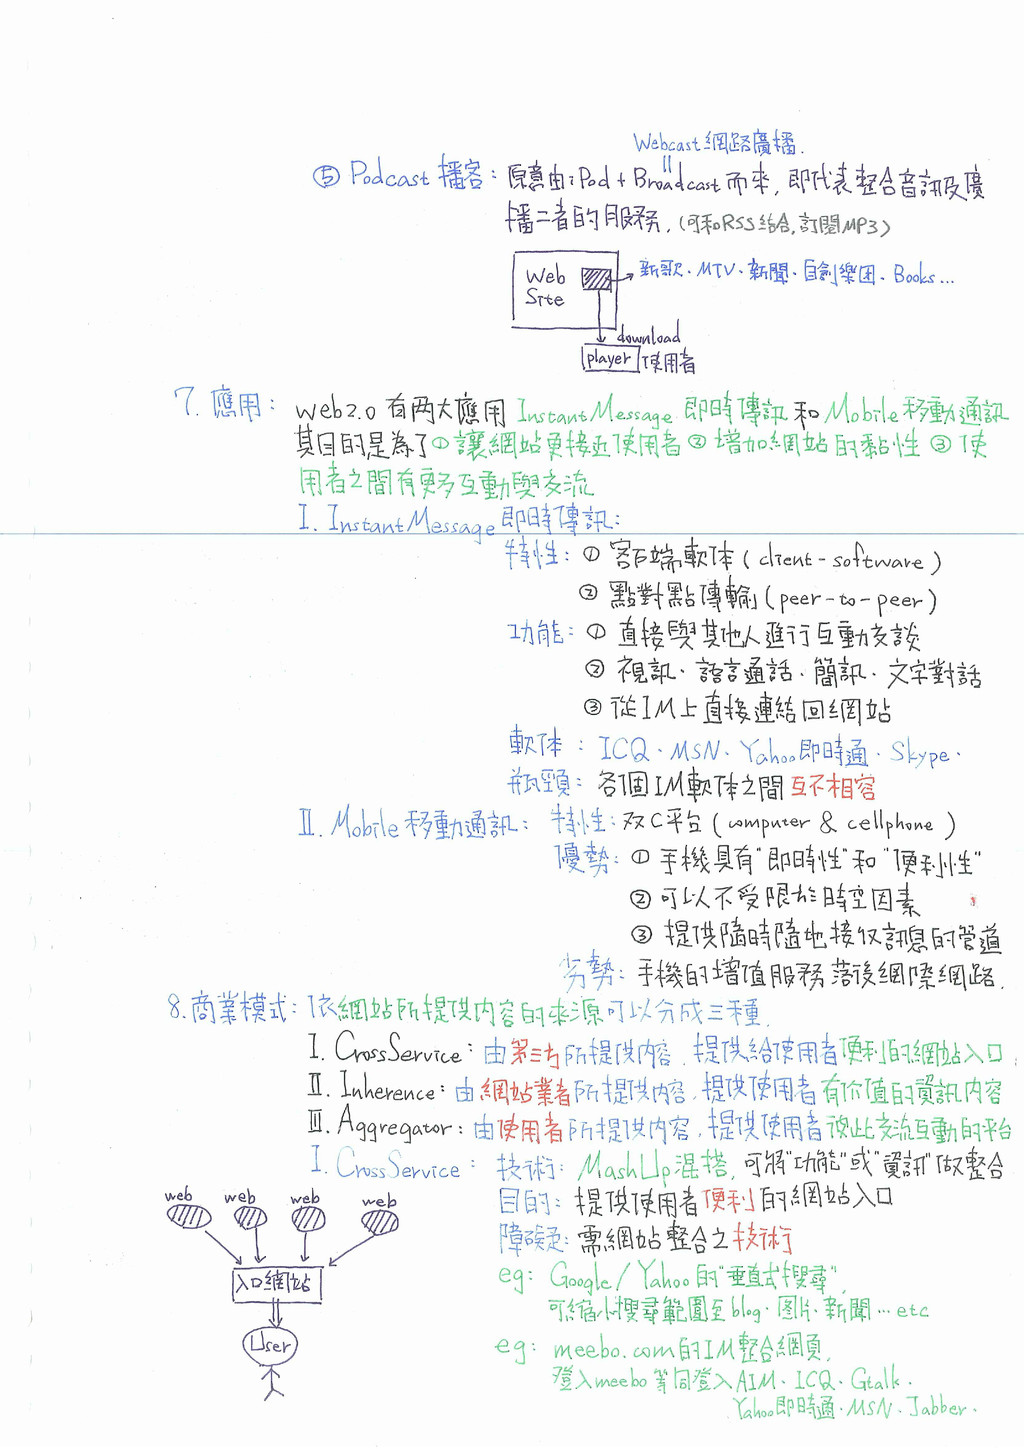 Webcast網路廣播.
⑤ Podcast 播客: 原意由iPod + Broadcast而來, 即代表整合音訊及廣
播二者的服務. (可和RSS結合, 訂閱MP3)
Web Site
新歌、MTV、新聞、自創樂団、Books...
download
player 使用者
7. 應用: web2.0 有两大應用 InstantMessage 即時傳訊 和 Mobile 移動通訊
其目的是為了①讓網站更接近使用者 ② 增加網站的黏性 ③ 使
用者之間有更多互動與交流
I. InstantMessage 即時傳訊:
特性: ① 客戶端軟体 ( client-software )
② 點對點傳輸 (peer-to-peer)
功能: ① 直接與其他人進行互動交談
② 視訊、語言通話、簡訊、文字對話
③ 從IM上直接連結回網站
軟体: ICQ、MSN、Yahoo即時通、Skype.
瓶頸: 各個IM軟体之間互不相容
II. Mobile 移動通訊: 特性: 双C平台 ( computer & cellphone )
優勢: ① 手機具有"即時性"和 "便利性"
② 可以不受限於時空因素
③ 提供隨時隨地接收訊息的管道
劣勢: 手機的增值服務落後網際網路.
8. 商業模式: 依網站所提供内容的來源可以分成三種.
I. CrossService: 由第三方所提供内容, 提供給使用者便利的網站入口.
II. Inherence: 由網站業者所提供内容, 提供使用者有價值的資訊内容
III. Aggregator: 由使用者所提供内容, 提供使用者彼此交流互動的平台
I. CrossService: 技術: MashUp混搭, 可將"功能"或"資訊"做整合
目的: 提供使用者便利的網站入口
障礙: 需網站整合之技術
web web web web
入口網站
User
eg: Google / Yahoo 的"垂直式搜尋",
可縮小搜尋範圍至blog、图片、新聞…etc
eg: meebo.com的IM整合網頁,
登入meebo等同登入AIM、ICQ、Gtalk、
Yahoo即時通、MSN、Jabber.